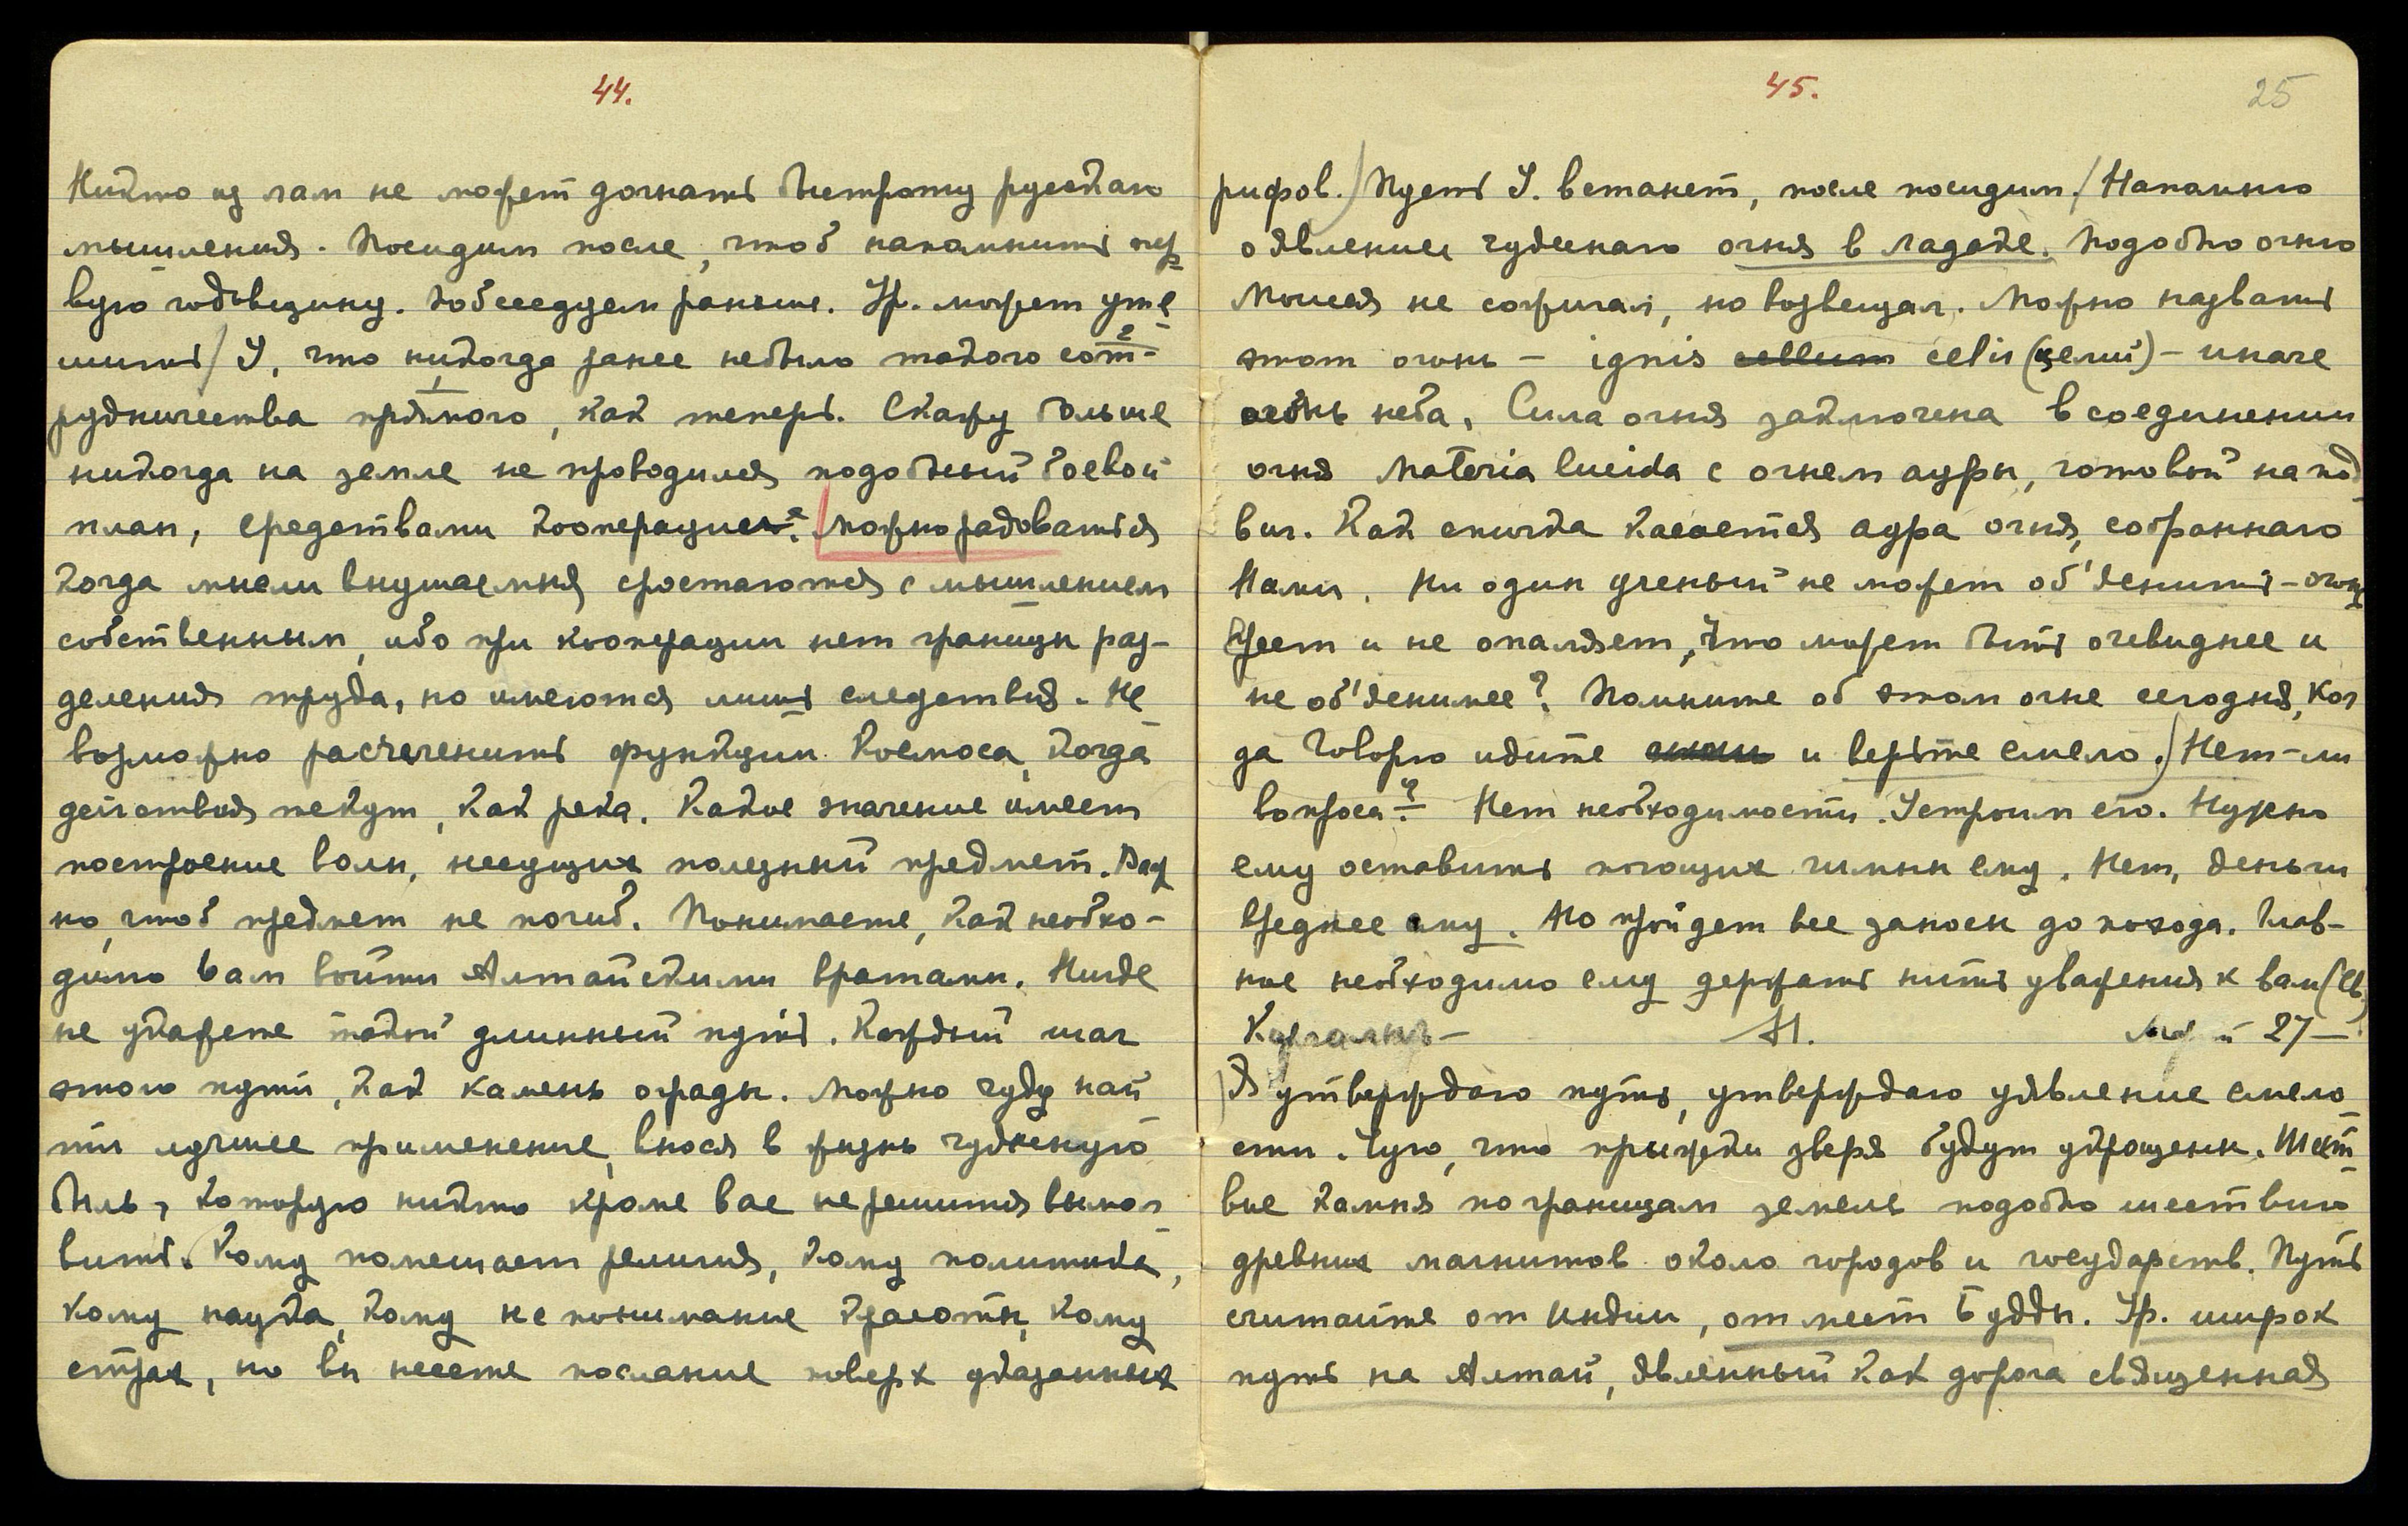 44.
Никто из лам не может догнать быстроту русскаго
мышления. Посидим после, чтоб напомнить пер-
вую годовщину. Побеседуем раньше. Ур. может уте
шить / У, что никогда ранее небыло такого сот-
рудничества прямого, как теперь. Скажу больше
никогда на земле не проводился подобный боевой
план, средствами кооперации. Можно радоваться
когда мысли внушаемыя сростаются с мышлением
собственным, ибо при кооперации нет границы раз-
деления труда, но имеются лишь следствия. Не
возможно расчеченить функции Космоса, когда
действия текут, как река. Какое значение имеет
построение волн, несущих полезный предмет. Важ
но, чтоб предмет не погиб. Понимаете, как необхо-
димо вам войти Алтайскими вратами. Нигде
не укажете такой длинный путь. Каждый шаг
этого пути, как камень ограды. Можно чуду най
ти лучшее применение, внося в жизнь чудесную
быль, которую никто кроме вас не решится вымол
вить. Кому помешает религия, кому политика,
кому наука, кому не понимание красоты, кому
страх, но вы несете послание поверх указанных
45.
25
рифов.) Пусть У. встанет, после посидим. / Напомню
о явлении чудеснаго огня в Ладаке. Подобно огню
Моисея не сожигал, но возвещал. Можно назвать
этот огонь – ignis cellum celis (целий) – иначе
огонь неба. Сила огня заключена в соединении
огня Materia lucida с огнем ауры, готовой на под
виг. Как спичка касается ядра огня, собраннаго
Нами. Ни один ученый не может об'яснить – огонь
греет и не опаляет, что может быть очевиднее и
не об'яснимее? Помните об этом огне сегодня, ког
да Говорю идите и верьте смело.) Нет-ли
вопроса? Нет необходимости. Устроим его. Нужно
ему оставить поющих гимны ему. Нет, деньги
вреднее ему. Но пройдет все заносы до похода. Глав-
ное необходимо ему держать нить уважения к вам (Св.)
М. 27 –
Я утверждаю путь, утверждаю уявление смело
сти. Чую, что прыжки зверя будут укрощены. Шест
вие камня по границам земель подобно шествию
древних магнитов около городов и государств. Путь
считайте от Индии, от мест Будды. Ур. широк
путь на Алтай, явленный как дорога священная